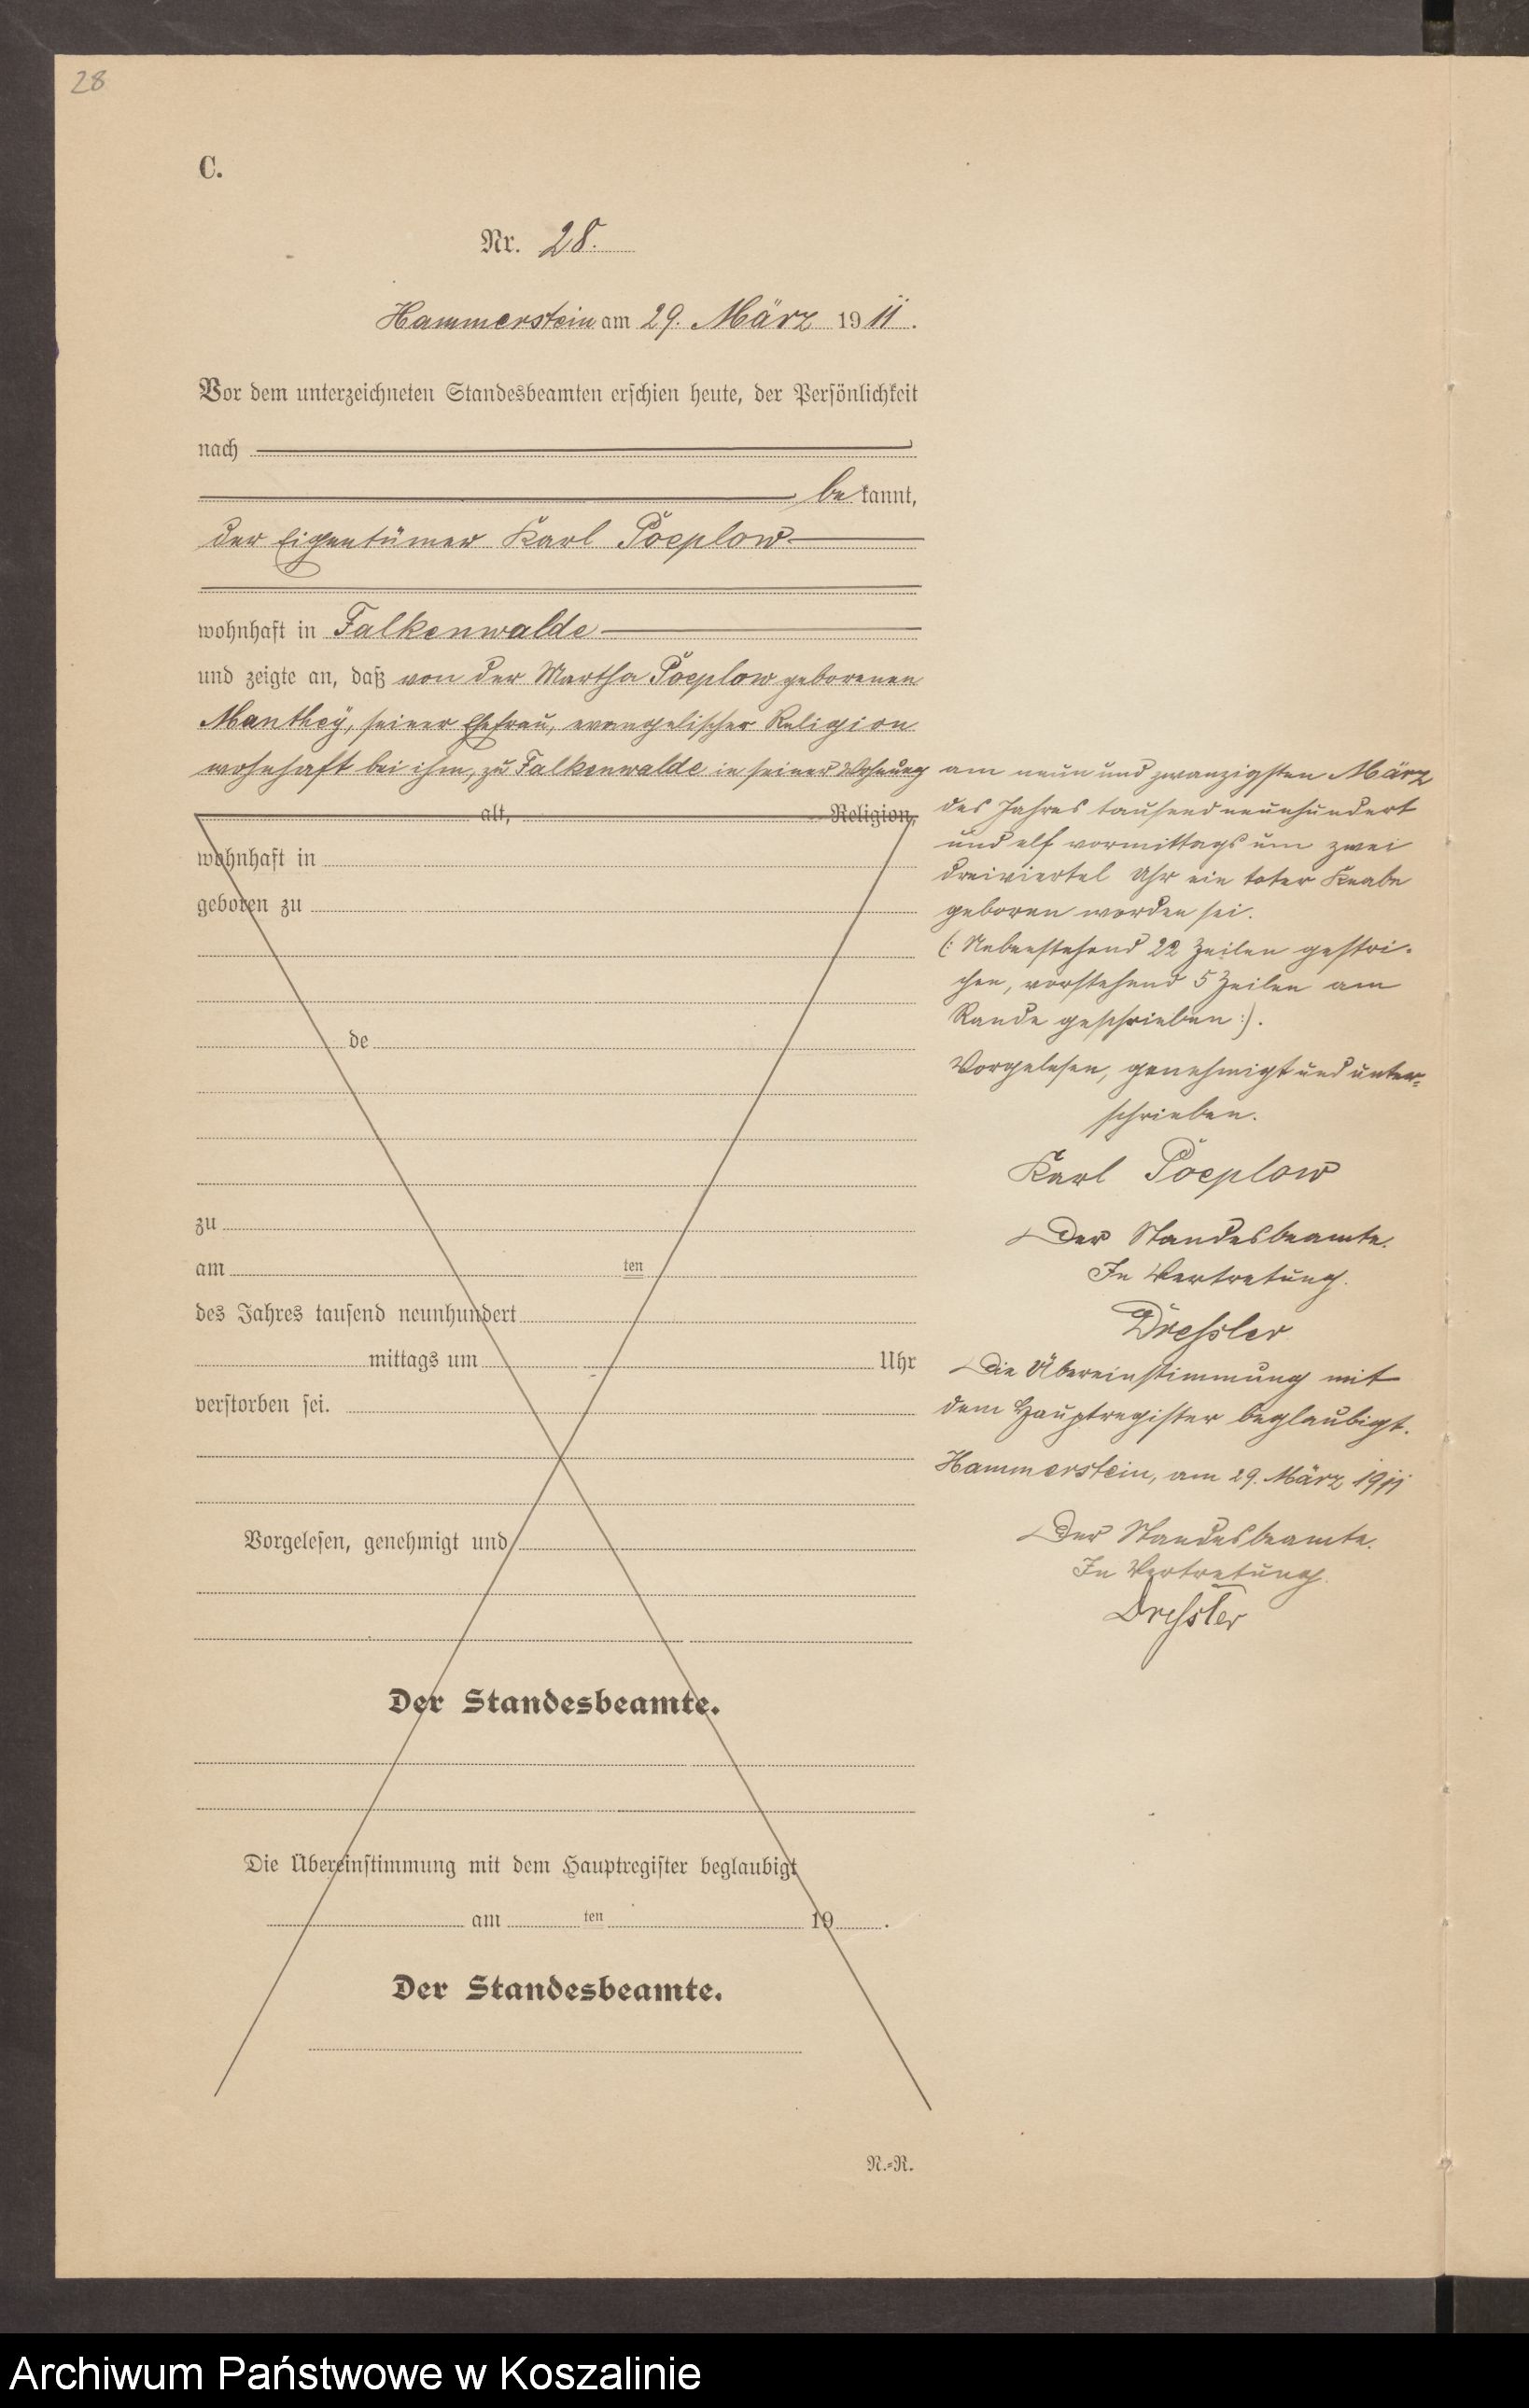 28
C.
Nr. 28.
Hammerstein am 29. März 1911.
Vor dem unterzeichneten Standesbeamten erschien heute, der Persönlichkeit
nach
bekannt,
der Eigentümer Karl Poeplow
wohnhaft in Falkenwalde
und zeigte an, daß von der Martha Poeplow geborenen
Manthey, seiner Ehefrau, evangelischer Religion
wohnhaft bei ihm, zu Falkenwalde in seiner Wohnung
am neun und zwanzigsten März
des Jahres tausend neunhundert
und elf vormittags um zwei
dreiviertel Uhr ein toter Knabe
geboren worden sei.
(: Nebenstehend 22 Zeilen gestri-
chen, vorstehend 5 Zeilen am
Rande geschrieben :).
Vorgelesen, genehmigt und unter-
schrieben.
Karl Poeplow
Der Standesbeamte.
In Vertretung.
Dressler
Die Übereinstimmung mit
dem Hauptregister beglaubigt.
Hammerstein, am 29. März 1911
Der Standesbeamte.
In Vertretung.
Dressler
alt, Religion,
wohnhaft in
geboren zu
de
zu
am ten
des Jahres tausend neunhundert
mittags um Uhr
verstorben sei.
Vorgelesen, genehmigt und
Der Standesbeamte.
Die Übereinstimmung mit dem Hauptregister beglaubigt
am ten 19 .
Der Standesbeamte.
N.-R.
Archiwum Państwowe w Koszalinie